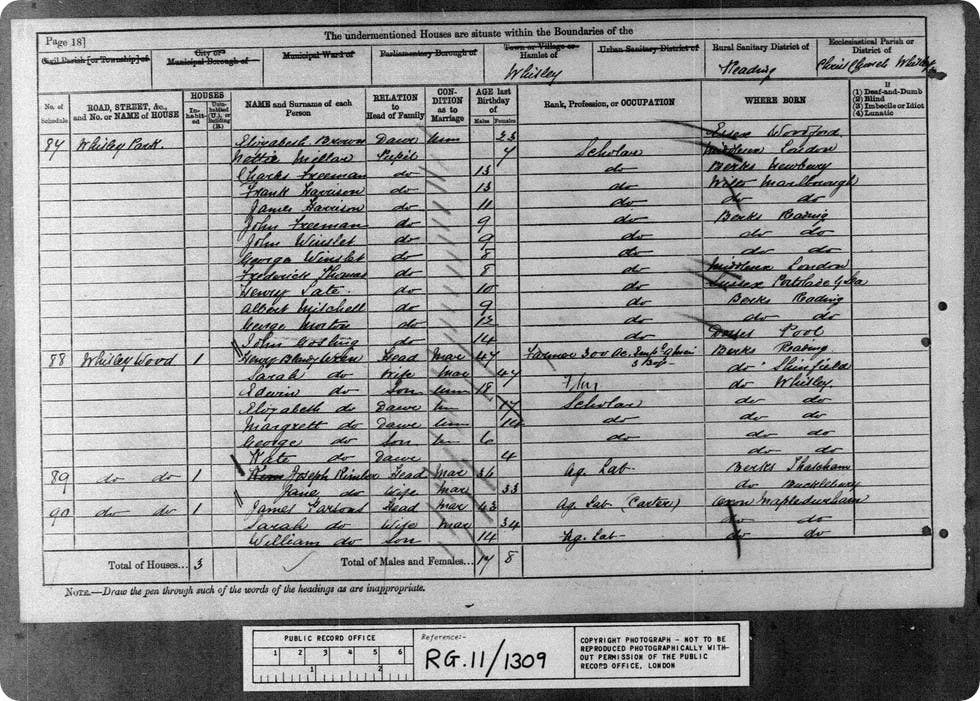 Page 18]
The undermentioned Houses are situate within the Boundaries of the
Civil Parish [or Township] of
City or Municipal Borough of
Municipal Ward of
Parliamentary Borough of
Town or Village or Hamlet of
Whisley
Urban Sanitary District of
Rural Sanitary District of
Reading
Ecclesiastical Parish or District of
Christ Church Whisley
No. of Schedule
ROAD, STREET, &c., and No. or NAME of HOUSE
HOUSES
Inhabited
Uninhabited (U.), or Building (B.)
NAME and Surname of each Person
RELATION to Head of Family
CONDITION as to Marriage
AGE last Birthday of
Males
Females
Rank, Profession, or OCCUPATION
WHERE BORN
If
(1) Deaf-and-Dumb
(2) Blind
(3) Imbecile or Idiot
(4) Lunatic
87 Whisley Park Elizabeth Brown Dawr Unm 23 Essex Woodford
Millar Pupil 7 Scholar Middlesex London
Charles Freeman do 13 do Berks Newbury
Frank Harrison do 13 do Wilts Marlborough
James Harrison do 11 do do do
John Freeman do 9 do Berks Reading
John Winslet do 9 do do do
George Winslet do 8 do do do
Frederick Thomas do 8 do Middlesex London
Henry do 10 do Sussex
Albert Mitchell do 9 do Berks Reading
George Morton do 12 do do do
John Gosling do 14 do Dorset Pool
88 Whisley Wood 1 Henry Head Mar 47 Farmer 300 Ac. Berks Reading
Sarah do Wife Mar 47 do Shinfield
Edwin do Son Unm 18 do Whisley
Elizabeth do Dawr Un 17 Scholar do do
Margrett do Dawr Unm 14 do do do
George do Son Un 6 do do do
Kate do Dawr 4 do do
89 do do 1 Joseph Head Mar 36 Ag. Lab Berks Thatcham
Jane do Wife Mar 33 do Bucklebury
90 do do 1 James Parsons Head Mar 43 Ag Lab (Carter) Oxon Mapledurham
Sarah do Wife Mar 34 do do
William do Son 14 Ag. Lab do do
Total of Houses... 3 Total of Males and Females... 17 8
NOTE.—Draw the pen through such of the words of the headings as are inappropriate.
PUBLIC RECORD OFFICE
1 2 3 4 5 6
1 2
Reference:-
RG.11/1309
COPYRIGHT PHOTOGRAPH - NOT TO BE
REPRODUCED PHOTOGRAPHICALLY WITH-
OUT PERMISSION OF THE PUBLIC
RECORD OFFICE, LONDON